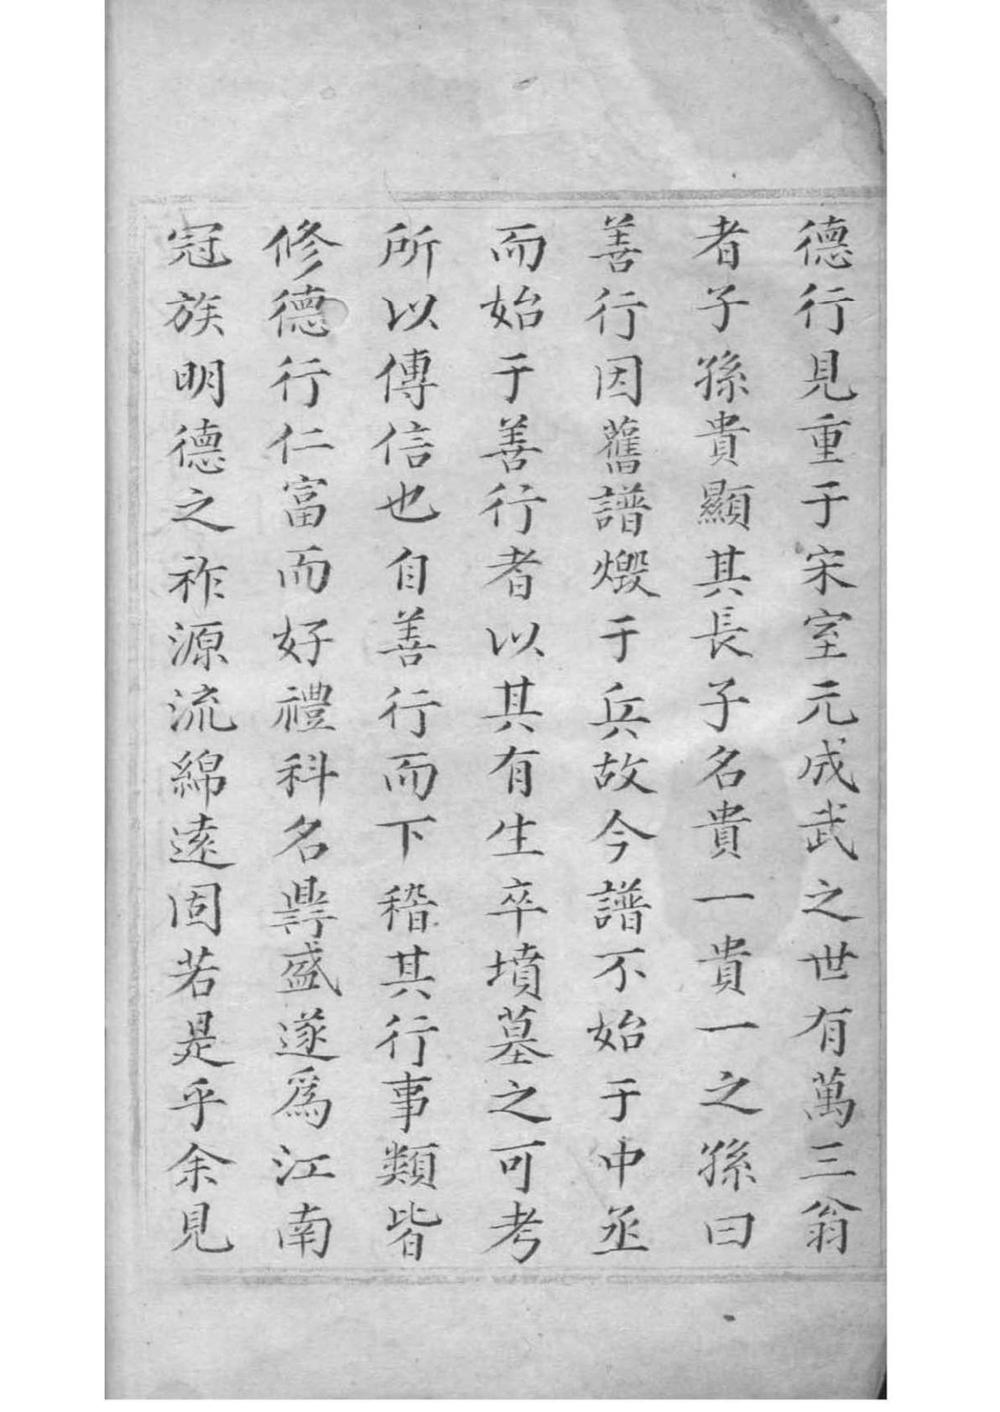 德行見重于宋室元成武之世有萬三翁
者子孫貴顯其長子名貴一貴一之孫曰
善行因舊譜燬于兵故今譜不始于中丞
而始于善行者以其有生卒墳墓之可考
所以傳信也自善行而下稽其行事類皆
修德行仁富而好禮科名鼎盛遂為江南
冠族明德之祚源流綿遠固若是乎余見